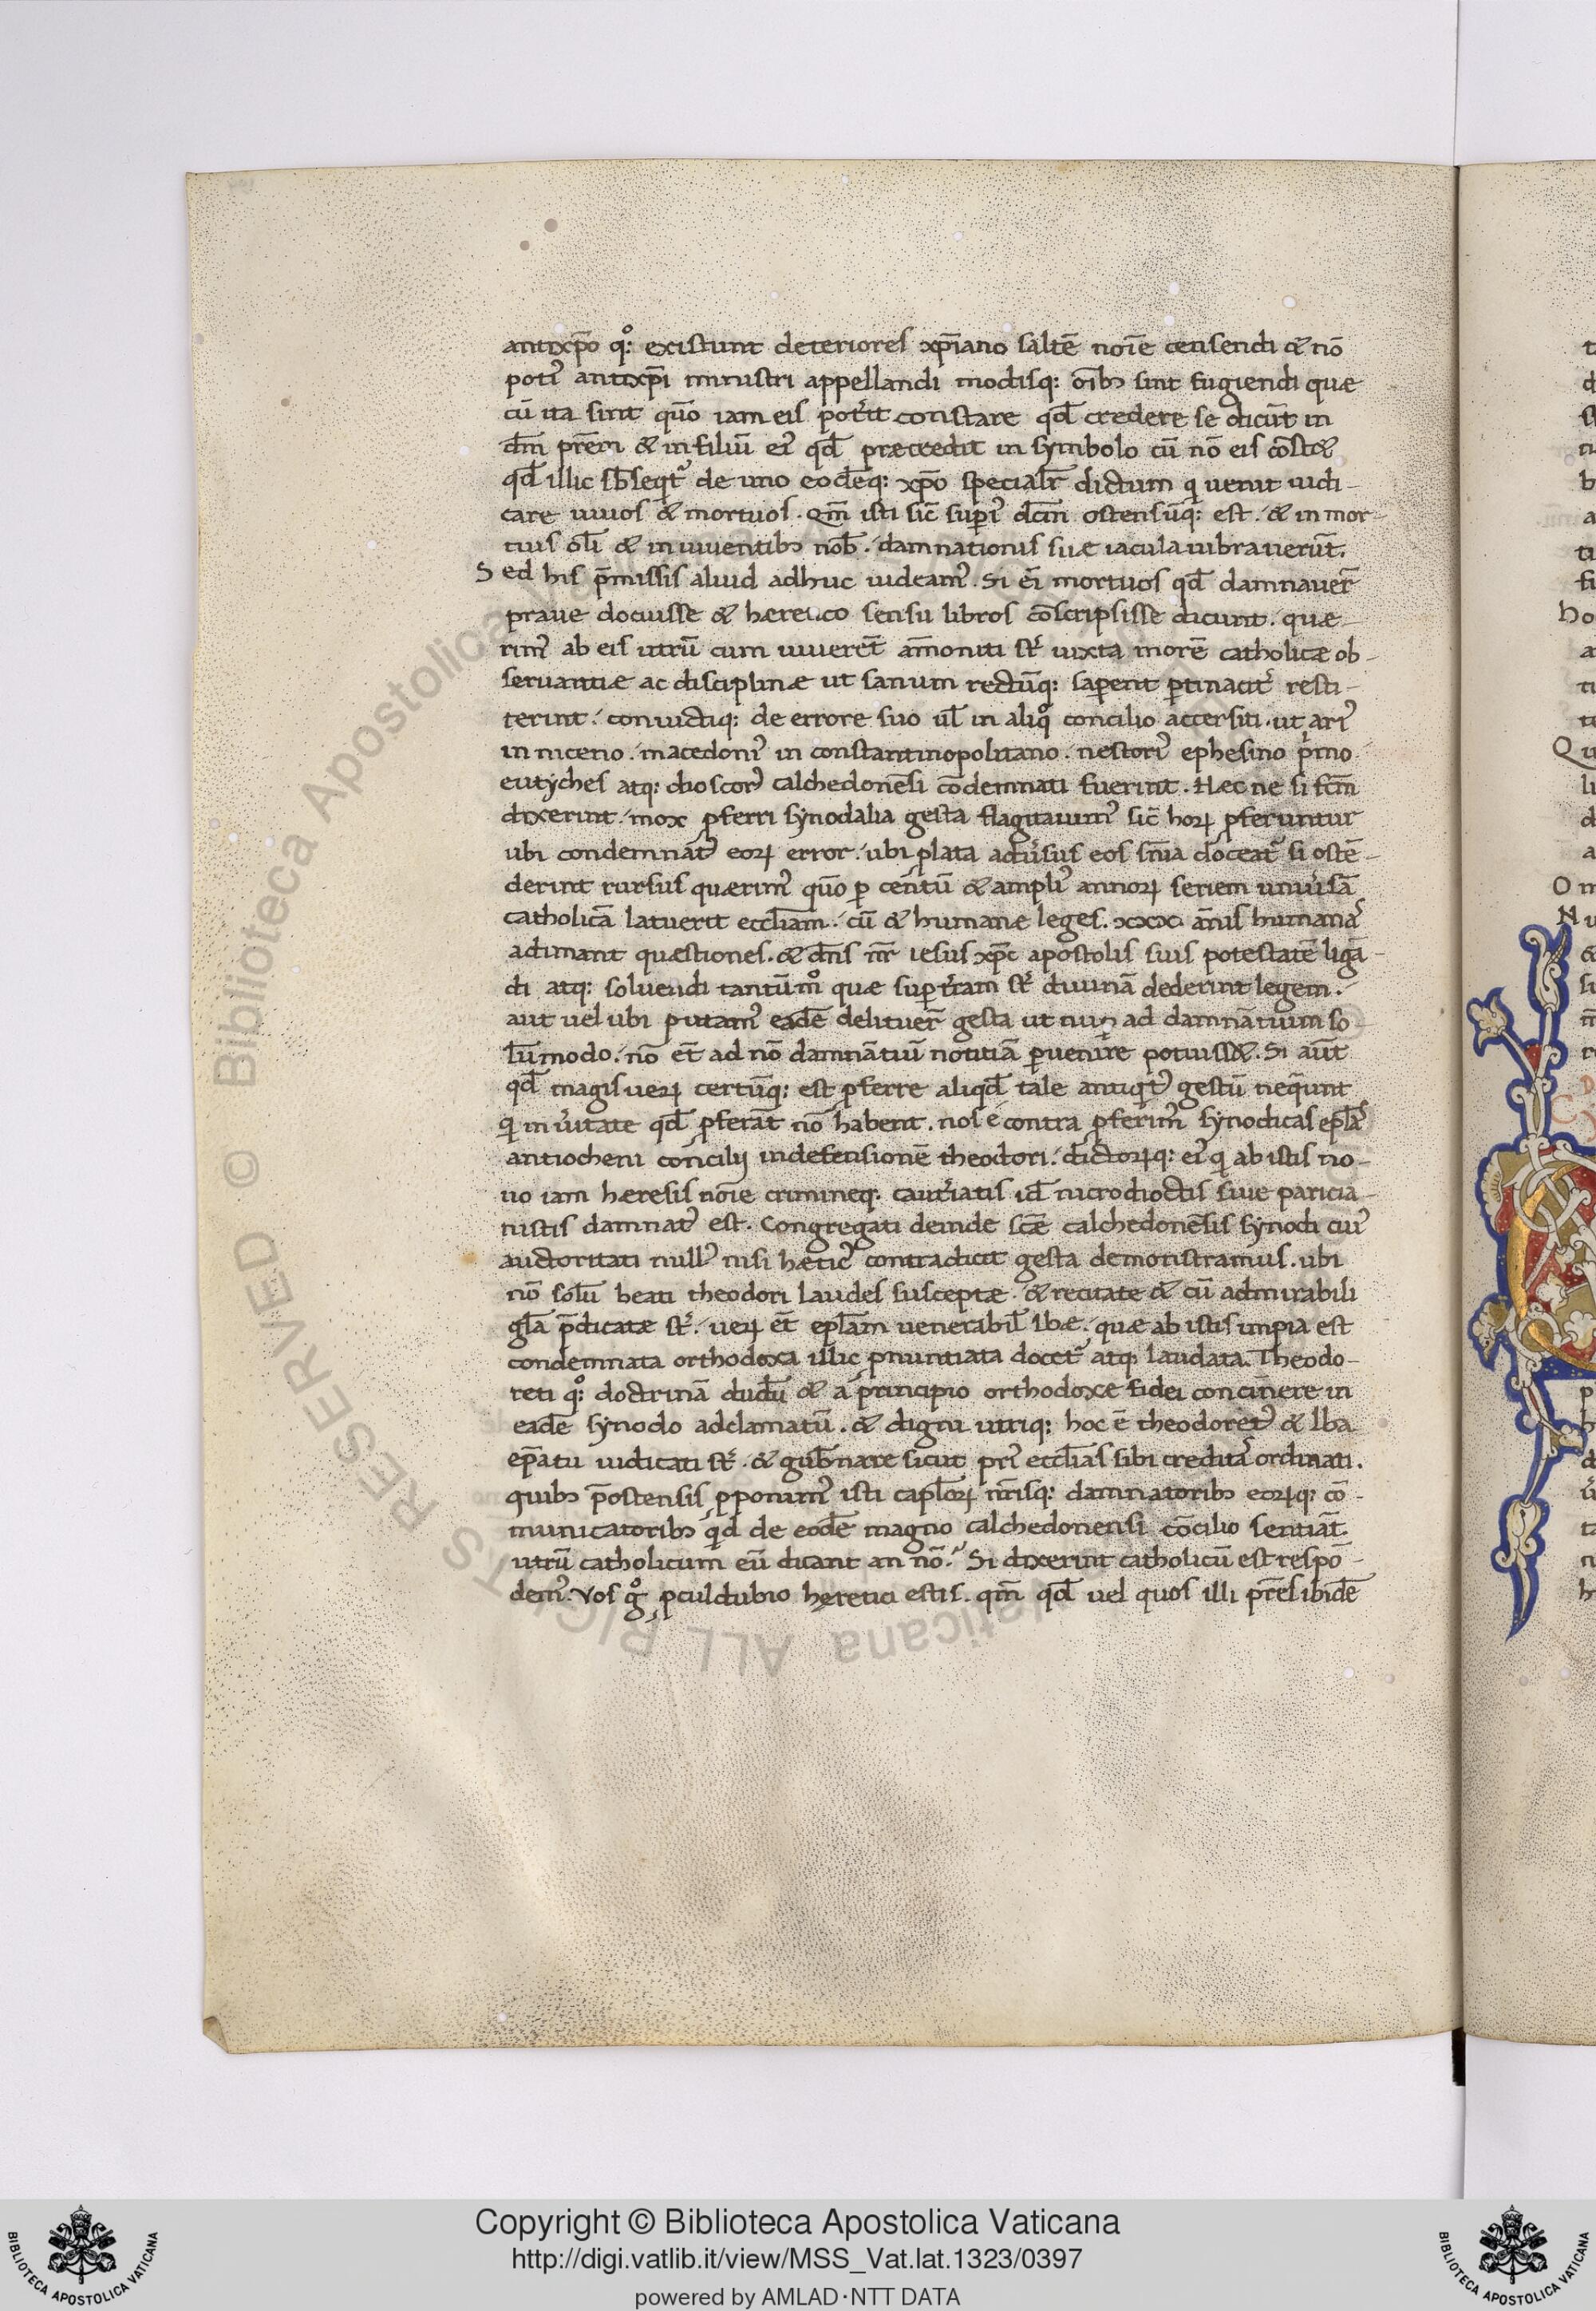 antixp̄o qͦ: existunt deteriores xp̄iano saltē noīe censendi & nō
potꝰ antixp̄i ministri appellandi modisq: oīb; sint fugiendi quæ
cū ita sint quō iam eis pot̓it constare qd̄ credere se dicūt in
dm̄ prēm & in filiū eiꝰ qd̄ præcedit in symbolo cū nō eis cōst&
qd̄ illic sb̄seqt̃ de uno eodēq: xp̄o specialr̄ dictum q uenit iudi-
care uiuos & mortuos. Qm̄ isti sic̄ supiꝰ dc̄m ostensūq: est. & in mor-
tuis oli & in uiuentib; nob̄. damnationis suæ iacula uibrauerūt.
Sed his p̄missis aliud adhuc uideamꝰ. Si eī mortuos qd̄ damnauer̄
praue docuisse & heretico sensu libros cōscripsisse dicunt. quæ-
rimꝰ ab eis utrū cum uiuerēt āmoniti st̓ iuxta morē catholicæ ob-
seruantiæ ac disciplinæ ut sanum rectūq: saperent ꝑtinacit̓ resti-
terint. conuictiq: de errore suo ul̄ in aliqͦ concilio accersiti. ut ariꝰ
in niceno. macedoniꝰ in constantinopolitano. nestoriꝰ ephesino p̓mo
eutyches atq: dioscorꝰ calchedonēsi cōdemnati fuerint. Hæc ne si fc̄m
dixerint. mox ꝓferri synodalia gesta flagitauimꝰ sic̄ hoꝝ ꝓferuntur
ubi condemnatꝰ eoꝝ error. ubi ꝓlata adu̓sus eos sn̄ia doceat̃ si ostē-
derint rursus quærimꝰ quō ꝑ centū & ampliꝰ annoꝝ seriem uniu̓sā
catholicā latuerit eccl̄iam. cū & humanæ leges. xxx. ānis humanaˢ
adimant quæstiones. & dn̄s nr̄ iesus xp̄c apostolis suis potestatē ligā-
di atq: soluendi tantūmͦ quæ suꝑ t̓ram st̓ diuinā dederint legem.
aut uel ubi putamꝰ eadē delituer̄ gesta ut nunc ad damnātium so-
lūmodo. nō et̄ ad nō damnātiū notitiā ꝑuenire potuiss&. Si aūt
qd̄ magis ueꝝ certūq: est ꝓferre aliqd̄ tale antiqtꝰ gestū neq̄unt
q in u̓itate qd̄ ꝓferāt nō habent. nos é contra ꝓferimꝰ synodicas epl̄aˢ
antiocheni concilij in defensionē theodori. dictoꝝq: eiꝰ q ab istis no-
uo iam heresis noīe crimineq. caut̓iatis id̄ nicrodioctis siue paricia-
nistis damnatꝰ est. Congregati deinde scǣ calchedonēsis synodi cuiꝰ
auctoritati nullꝰ nisi hæticꝰ contradicit gesta demonstramus. ubi
nō solū beati theodori laudes susceptæ & recitate & cū admirabili
gl̄a p̄dicatæ st̓. ueꝝ et̄ epl̄am uenerabil̄ Ibæ. quæ ab istis impia est
condemnata orthodoxa illic ꝓnuntiata docet̃ atq. laudata. Theodo-
reti qͦ: doctrinā dudū & a principio orthodoxe fidei concinere in
eadē synodo adclamatū. & digni utriq: hoc ē theodoretꝰ & Iba
ep̄atu iudicati st̓. & gub̄nare sicut priꝰ eccl̄ias sibi creditaˢ ordinati.
quib; p̄ostensis ꝓponimꝰ isti capl̄oꝝ nr̄isq: damnatorib; eoꝝq: cō-
municatorib; qd de eodē magno calchedonensi cōcilio sentiāt.
utrū catholicum eū dicant an nō? Si dixerint catholicū est respō-
demꝰ. Vos gͦ ꝓculdubio hęretici estis. qm̄ qd̄ uel quos illi pr̄es ibidē
Copyright © Biblioteca Apostolica Vaticana
http://digi.vatlib.it/view/MSS_Vat.lat.1323/0397
powered by AMLAD·NTT DATA